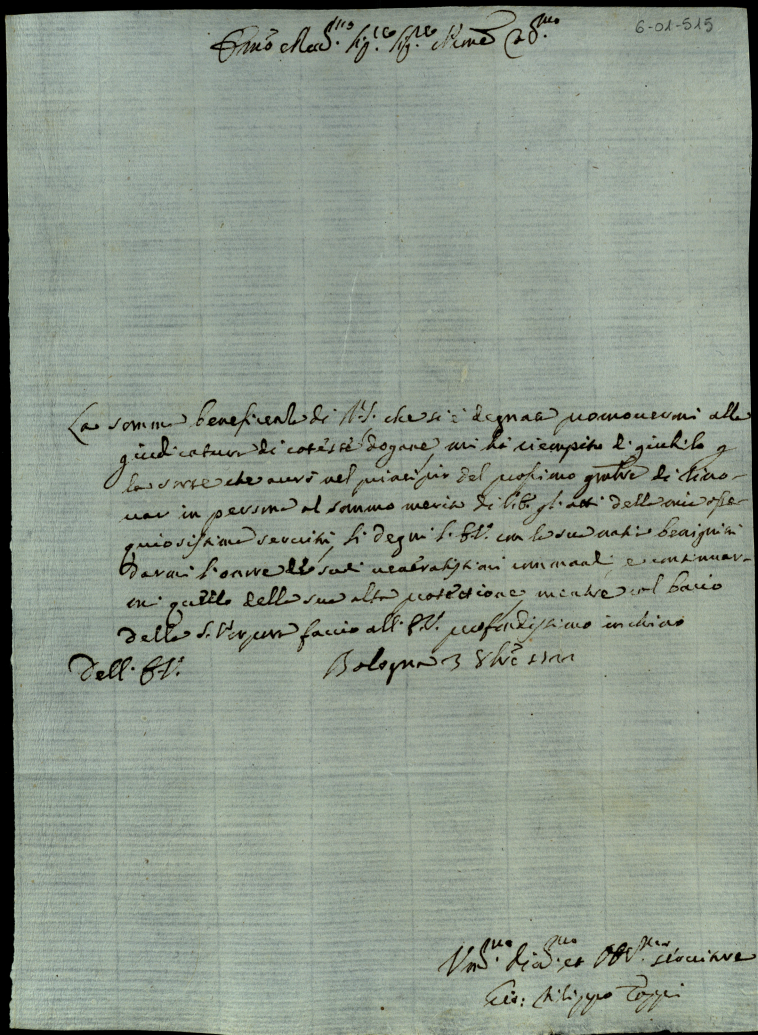 6-01-515
Em̄o e Rev.mo Sig.re Sig.re e P̄rōne Col.mo
La somma beneficenza di V.S. che si è degnata promovermi alla
giudicatura di cotesse dogane, mi hà riempito di giubilo p
la sorte che averò nel principio del prossimo di rino-
var in persona al sommo merito di gli atti della mia osse-
quiosissima servitù, si degni l'E.V. con la sua natia benignità
darmi l'onore de suoi veneratissimi comandi, e continuar-
mi quello della sua alta protettione, mentre col bacio
della S. Porpora faccio all'E.V. profondissimo inchino
Dell'E.V. Bologna 3 8bre
Um.mo Div.mo et Obl.mo servitore
Gio: Filippo Toppi